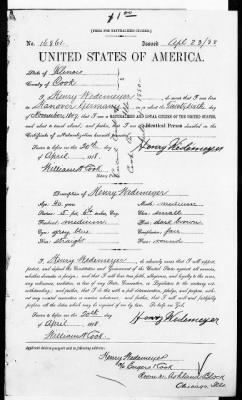 $1.00
[FORM FOR NATURALIZED CITIZEN.]
No. 16861. Issued Apl 23/88
UNITED STATES OF AMERICA.
State of Illinois
County of Cook
I, Henry Wedemeyer do swear that I was born
in Hanover Germany on or about the
day of
November that I am a NATURALIZED AND LOYAL CITIZEN OF THE UNITED STATES,
and about to travel abroad; and further, that I am the Identical Person described in the
Certificate of Naturalization
Sworn to before me this 20th day
of April 188
William H Cook.
Notary Public.
Henry Wedemeyer
Description of Henry Wedemeyer
Age: 40 years Mouth: medium
Stature: 5 ft. inches, Eng. Chin: small
Forehead: medium Hair: dark brown
Eyes: gray blue Complexion: fair
Nose: straight Face: round
I, Henry Wedemeyer do solemnly swear that I will support,
protect, and defend the Constitution and Government of the United States against all enemies,
whether domestic or foreign; and that I will bear true faith, allegiance, and loyalty to the same,
any ordinance, resolution, or law of any State, Convention, or Legislature to the contrary not-
withstanding; and further, that I do this with a full determination, pledge, and purpose, without
any mental reservation or evasion whatsoever; and further, that I will well and faithfully
perform all the duties which may be required of me by law: So help me God.
Sworn to before me this 20th day
of April 188
William H Cook.
Henry Wedemeyer
Applicant desires passport sent to following address:
Henry Wedemeyer
Ashland Block
Chicago, Ills.